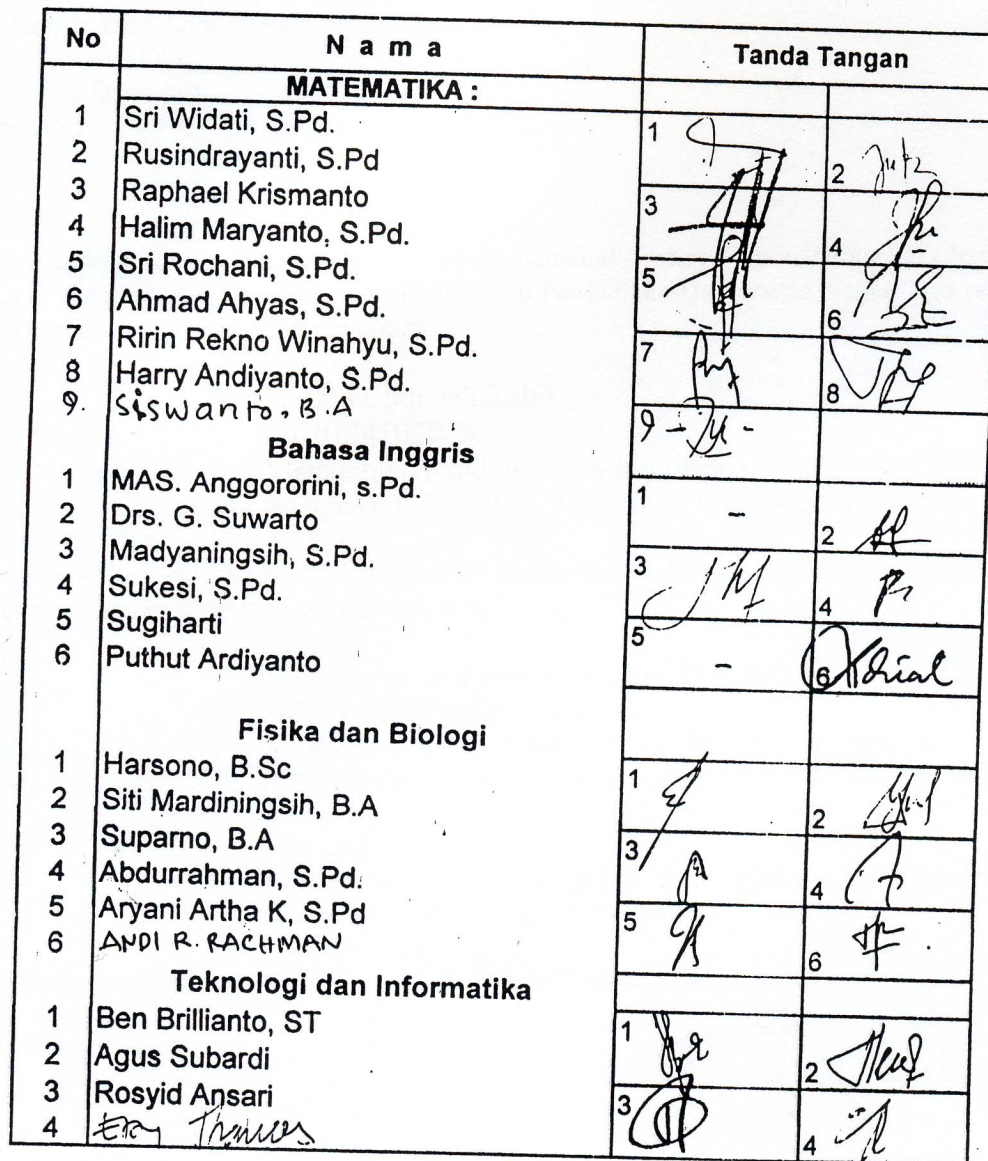 No N a m a Tanda Tangan
MATEMATIKA :
1 Sri Widati, S.Pd. 1
2 Rusindrayanti, S.Pd 2
3 Raphael Krismanto 3
4 Halim Maryanto, S.Pd. 4
5 Sri Rochani, S.Pd. 5
6 Ahmad Ahyas, S.Pd. 6
7 Ririn Rekno Winahyu, S.Pd. 7
8 Harry Andiyanto, S.Pd. 8
9. Siswanto, B.A 9
Bahasa Inggris
1 MAS. Anggororini, s.Pd. 1 -
2 Drs. G. Suwarto 2
3 Madyaningsih, S.Pd. 3
4 Sukesi, S.Pd. 4
5 Sugiharti 5 -
6 Puthut Ardiyanto 6
Fisika dan Biologi
1 Harsono, B.Sc 1
2 Siti Mardiningsih, B.A 2
3 Suparno, B.A 3
4 Abdurrahman, S.Pd. 4
5 Aryani Artha K, S.Pd 5
6 ANDI R. RACHMAN 6
Teknologi dan Informatika
1 Ben Brillianto, ST 1
2 Agus Subardi 2
3 Rosyid Ansari 3
4 4